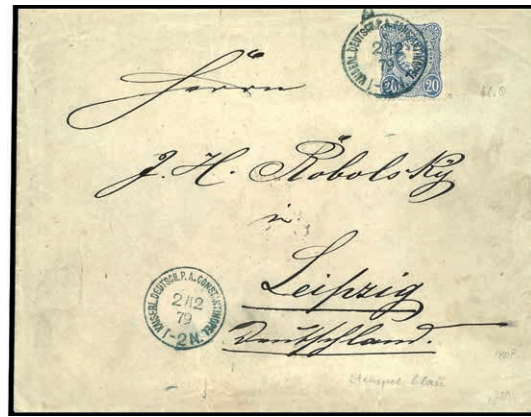 KAISERL. DEUTSCH. P. A. CONSTANTINOPEL
2/12
79
1-2N.
20 20
Herrn
J. H. Robolsky
in
Leipzig
Deutschland.
KAISERL. DEUTSCH. P. A. CONSTANTINOPEL
2/12
79
1-2N.
Stempel blau